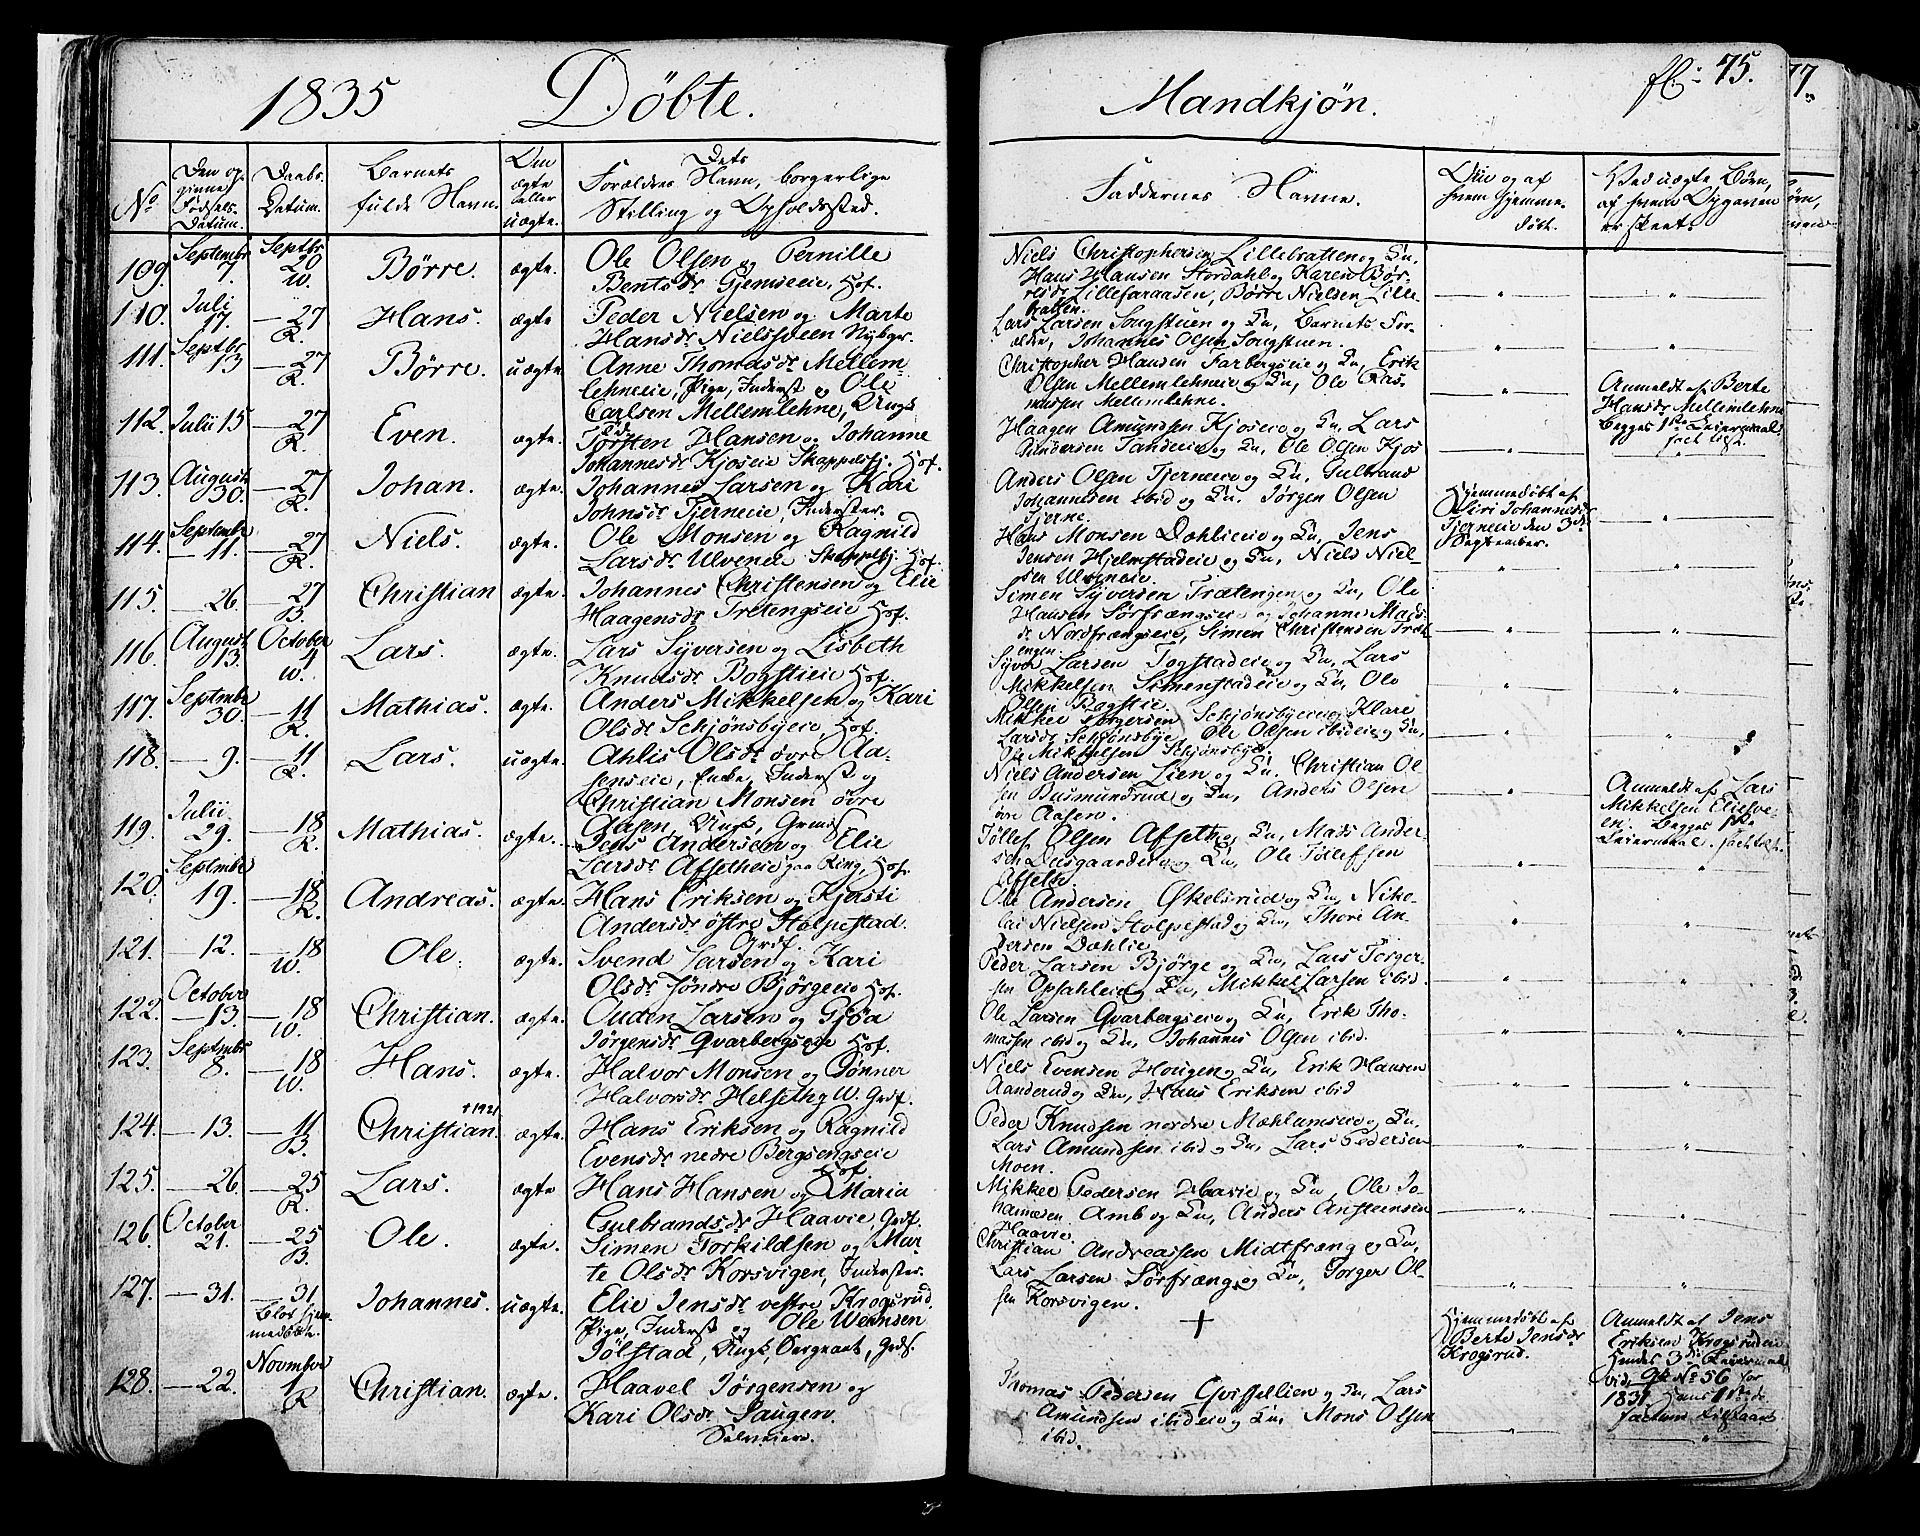 1835 Döbte.
Mandkjøn.
fl: 75.
77
No
Den op-
givne
Fødsels-
Datum.
Daabs-
Datum.
Barnets
fulde Navn.
Om
ægte
eller
uægte.
Dets
Forældres Navn, borgerlige
Stilling og Opholdssted.
Faddernes Navne.
Om og af
hvem hjemme-
døbt.
Ved uægte Børn,
af hvem Opgaven
er skeet.
109. Septembr 7. Septbr 20 W. Børre. ægte.
Ole Olsen og Pernille
Bentsdr Gjemseeie, Hof.
Niels Christophersen Lillebratten og Qu,
Hans Hansen Stordahl og Karen Bør-
resdr Lillefaraasen, Børre Nielsen Lille-
bratten.
110. Juli 17. — 27 R. Hans. ægte
Peder Nielsen og Marte
Hansdr Nielssveen Nybgr.
Lars Larsen Songstuen og Qu, Barnets For-
ældre, Johannes Olsen Songstuen.
111. Septbr 13 — 27 R. Børre. uægte.
Anne Thomasdr Mellem-
lehneeie, Pige, Inderst og Ole
Carlsen Mellemlehne, Ungk.
Christopher Hansen Farbergseie og Qu, Erik
Olsen Mellemlehneie og Qu, Ole Ras-
mussen Mellemlehne.
Anmeldt af Berte
Hansdr Mellemlehne
Begges 1ste Leiermaal
112. Julii 15 — 27 R. Even. ægte.
Torsten Hansen og Johanne
Johannesdr Kjoseie Skappelsj. Hof.
Haagen Amundsen Kjoseie og Qu, Lars
Gundersen Sandeeie og Qu, Ole Olsen Kjos
113. August 30. — 27 R. Johan. ægte.
Johannes Larsen og Kari
Johnsdr Tjerneeie, Inderster.
Anders Olsen Tjerneeie og Qu, Gulbrand
Johannesen ibid og Qu, Jørgen Olsen
Tjerne.
Hjemmedøbt af
Siri Johannesdr
Tjerneeie den 3de
September.
114. Septembr 11. — 27 R. Niels. ægte.
Ole Monsen og Ragnild
Larsdr Ulveneie Skappelsj. Hof.
Hans Monsen Dæhlieeie og Qu, Jens
Jensen Hjelmstadeie og Qu, Niels Niel-
sen Ulveneie.
115. — 26. — 27 B. Christian ægte.
Johannes Christensen og Elie
Haagensdr Tretengseie Hof.
Simen Syversen Trætengen og Qu, Ole
Hansen Sørfrængseie og Johanne Mads-
dr Nordfrængseie, Simen Christensen Træt-
engen.
116. August 13. October 4 W. Lars. ægte.
Lars Syversen og Lisbeth
Knudsdr Bogstieie Hof.
Syver Larsen Togstadeie og Qu, Lars
Mikkelsen Simenstadeie og Qu, Ole
Olsen Bogstie.
117. Septembr 30. — 11 R. Mathias. ægte.
Anders Mikkelsen og Kari
Olsdr Schjønsbyeie, Hof.
Mikkel Jørgensen Schjønsbyeie og Klare
Larsdr Schjønsbye, Ole Olsen ibideie og Qu,
Ole Mikkelsen Schjønsbye.
118. — 9. — 11 R. Lars. uægte.
Ahlis Olsdr øvre Aa-
senseie, Enke, Inderst og
Christian Monsen øvre
Aasen, Ungk, Grmdf
Niels Andersen Lien og Qu. Christian Ol-
sen Rusmundrud og Qu, Anders Olsen
øvre Aasen.
Anmeldt af Lars
Mikkelsen Elisve-
en. Begges 1ste
Leiermaal.
119. Julii 29. — 18 R. Mathias. ægte.
Jens Andersen og Elie
Larsdr Afsetheie paa Ring, Hof.
Tollef Olsen Afseth og Qu, Mads Ander-
sen Deisgaardeie og Qu, Ole Tollefsen
Afseth.
120. Septembr 19. — 18 R. Andreas. ægte.
Hans Eriksen og Kjersti
Andersdr østre Holpestad.
Grdf.
Ole Andersen Økelsrud og Qu, Niko-
lai Nielsen Holpestad og Qu, Thore An-
dersen Dæhlie.
121. — 12. — 18 W. Ole. ægte.
Svend Larsen og Kari
Olsdr søndre Bjørgeeie Hof.
Peder Larsen Bjørge og Qu, Lars Torger-
sen Opsahleie og Qu, Mikkel Larsen ibid.
122. October 13. — 18 W. Christian. ægte.
Ouden Larsen og Gjøa
Jørgensdr Qvarbergseie Hof.
Ole Larsen Qvarbergseie og Qu, Erik Tho-
massen ibid og Qu, Johannes Olsen ibid.
123. Septembr 8. — 18 W. Hans. ægte.
Halvor Monsen og Sønner
Halvorsdr Helseth W. Grdf.
Niels Evensen Hougen og Qu, Erik Hansen
Aanderud og Qu, Hans Eriksen ibid
124. — 13. — 11 B. Christian. †1921 ægte.
Hans Eriksen og Ragnild
Evensdr nedre Bergsengseie
Hof.
Peder Knudsen nordre Mæhlumseie og Qu,
Lars Amundsen ibid og Qu, Lars Pedersen
Moen.
125. — 26. — 25 R. Lars. ægte
Hans Hansen og Maria
Gulbrandsdr Haavie, Grdf.
Mikkel Pedersen Haavie og Qu, Ole Jo-
hannesen Amb og Qu, Anders Anstensen
Haavie.
126. October 21. — 25 B. Ole. ægte.
Simen Torkildsen og Mar-
te Olsdr Korsvigen, Inderster.
Christian Andreassen Midtfræng og Qu,
Lars Larsen Sørfræng og Qu, Torger Ol-
sen Korsvigen.
127. — 31. — 31. Blot hjem-
medøbte. Johannes. uægte.
Elie Jensdr vestre Krogsrud,
Pige, Inderst og Ole
Jølstad, Ungk, Sergeant, Grds.
+
Hjemmedøbt af
Berte Jensdr
Krogsrud.
Anmeldt af Jens
Eriksen Krogsruden
Hendes 3die Leiermaal
vid. Gk. No 56 for
1831. Hans 1ste do
128. — 22. Novembr 1 R Christian. ægte.
Haavel Jørgensen og
Kari Olsdr Haugen.
Selveiere.
Thomas Pedersen Gvissellien og Qu, Lars
Amundsen ibideie og Qu, Mons Olsen
ibid.